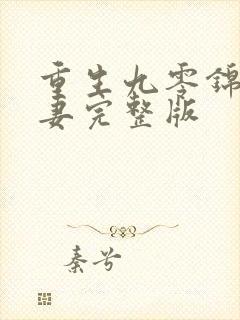 重生九零锦
妻完整版
秦兮